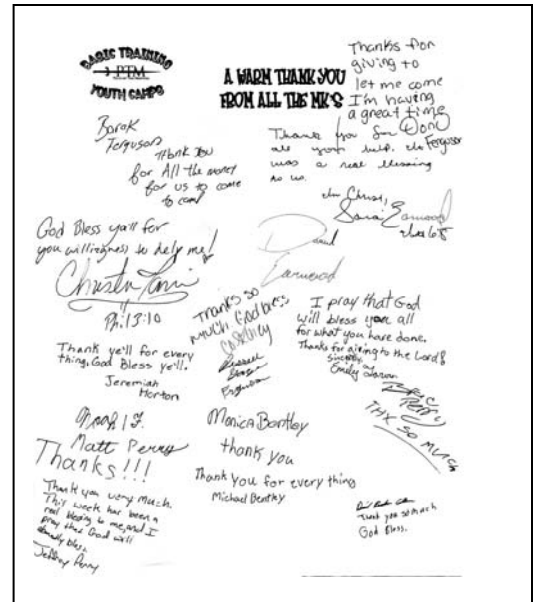 BASIC TRAINING
PTM
YOUTH CAMPS
A WARM THANK YOU
FROM ALL THE MK'S
Thanks for
giving to
let me come
I'm having
a great time
Ferguson
Thank You
for All the money
for us to come
to camp
Thank you for
all your help.
was a real blessing
to us.
In Christ,
God Bless ya'll for
you willingness to help me!
Phil 3:10
David
Earwood
Thanks so
much. God bless
Russell
Ferguson
I pray that God
will bless you all
for what you have done.
Thanks for giving to the Lord!
Sincerely,
Emily
Thank ye'll for every
thing. God Bless ye'll.
Jeremiah
Horton
Matt Perry
Thanks!!!
Monica Bentley
thank you
Thank you for every thing
Michael Bentley
PERRY
THX SO MUCH
Thank you very much.
This week has been a
real blessing to me, and I
pray that God will
bless.
Jeffrey Perry
Thank you so much
God Bless.